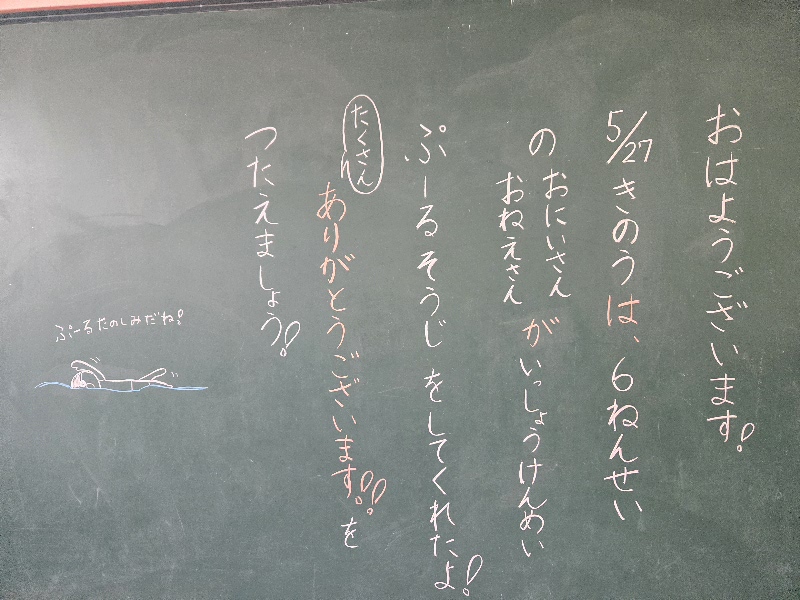 おはようございます!
5/27 きのうは、6ねんせい
の おにいさん
おねえさん
が いっしょうけんめい
ぷーる そうじ をしてくれたよ!
たくさん
ありがとうございます!! を
つたえましょう!
ぷーるたのしみだね!